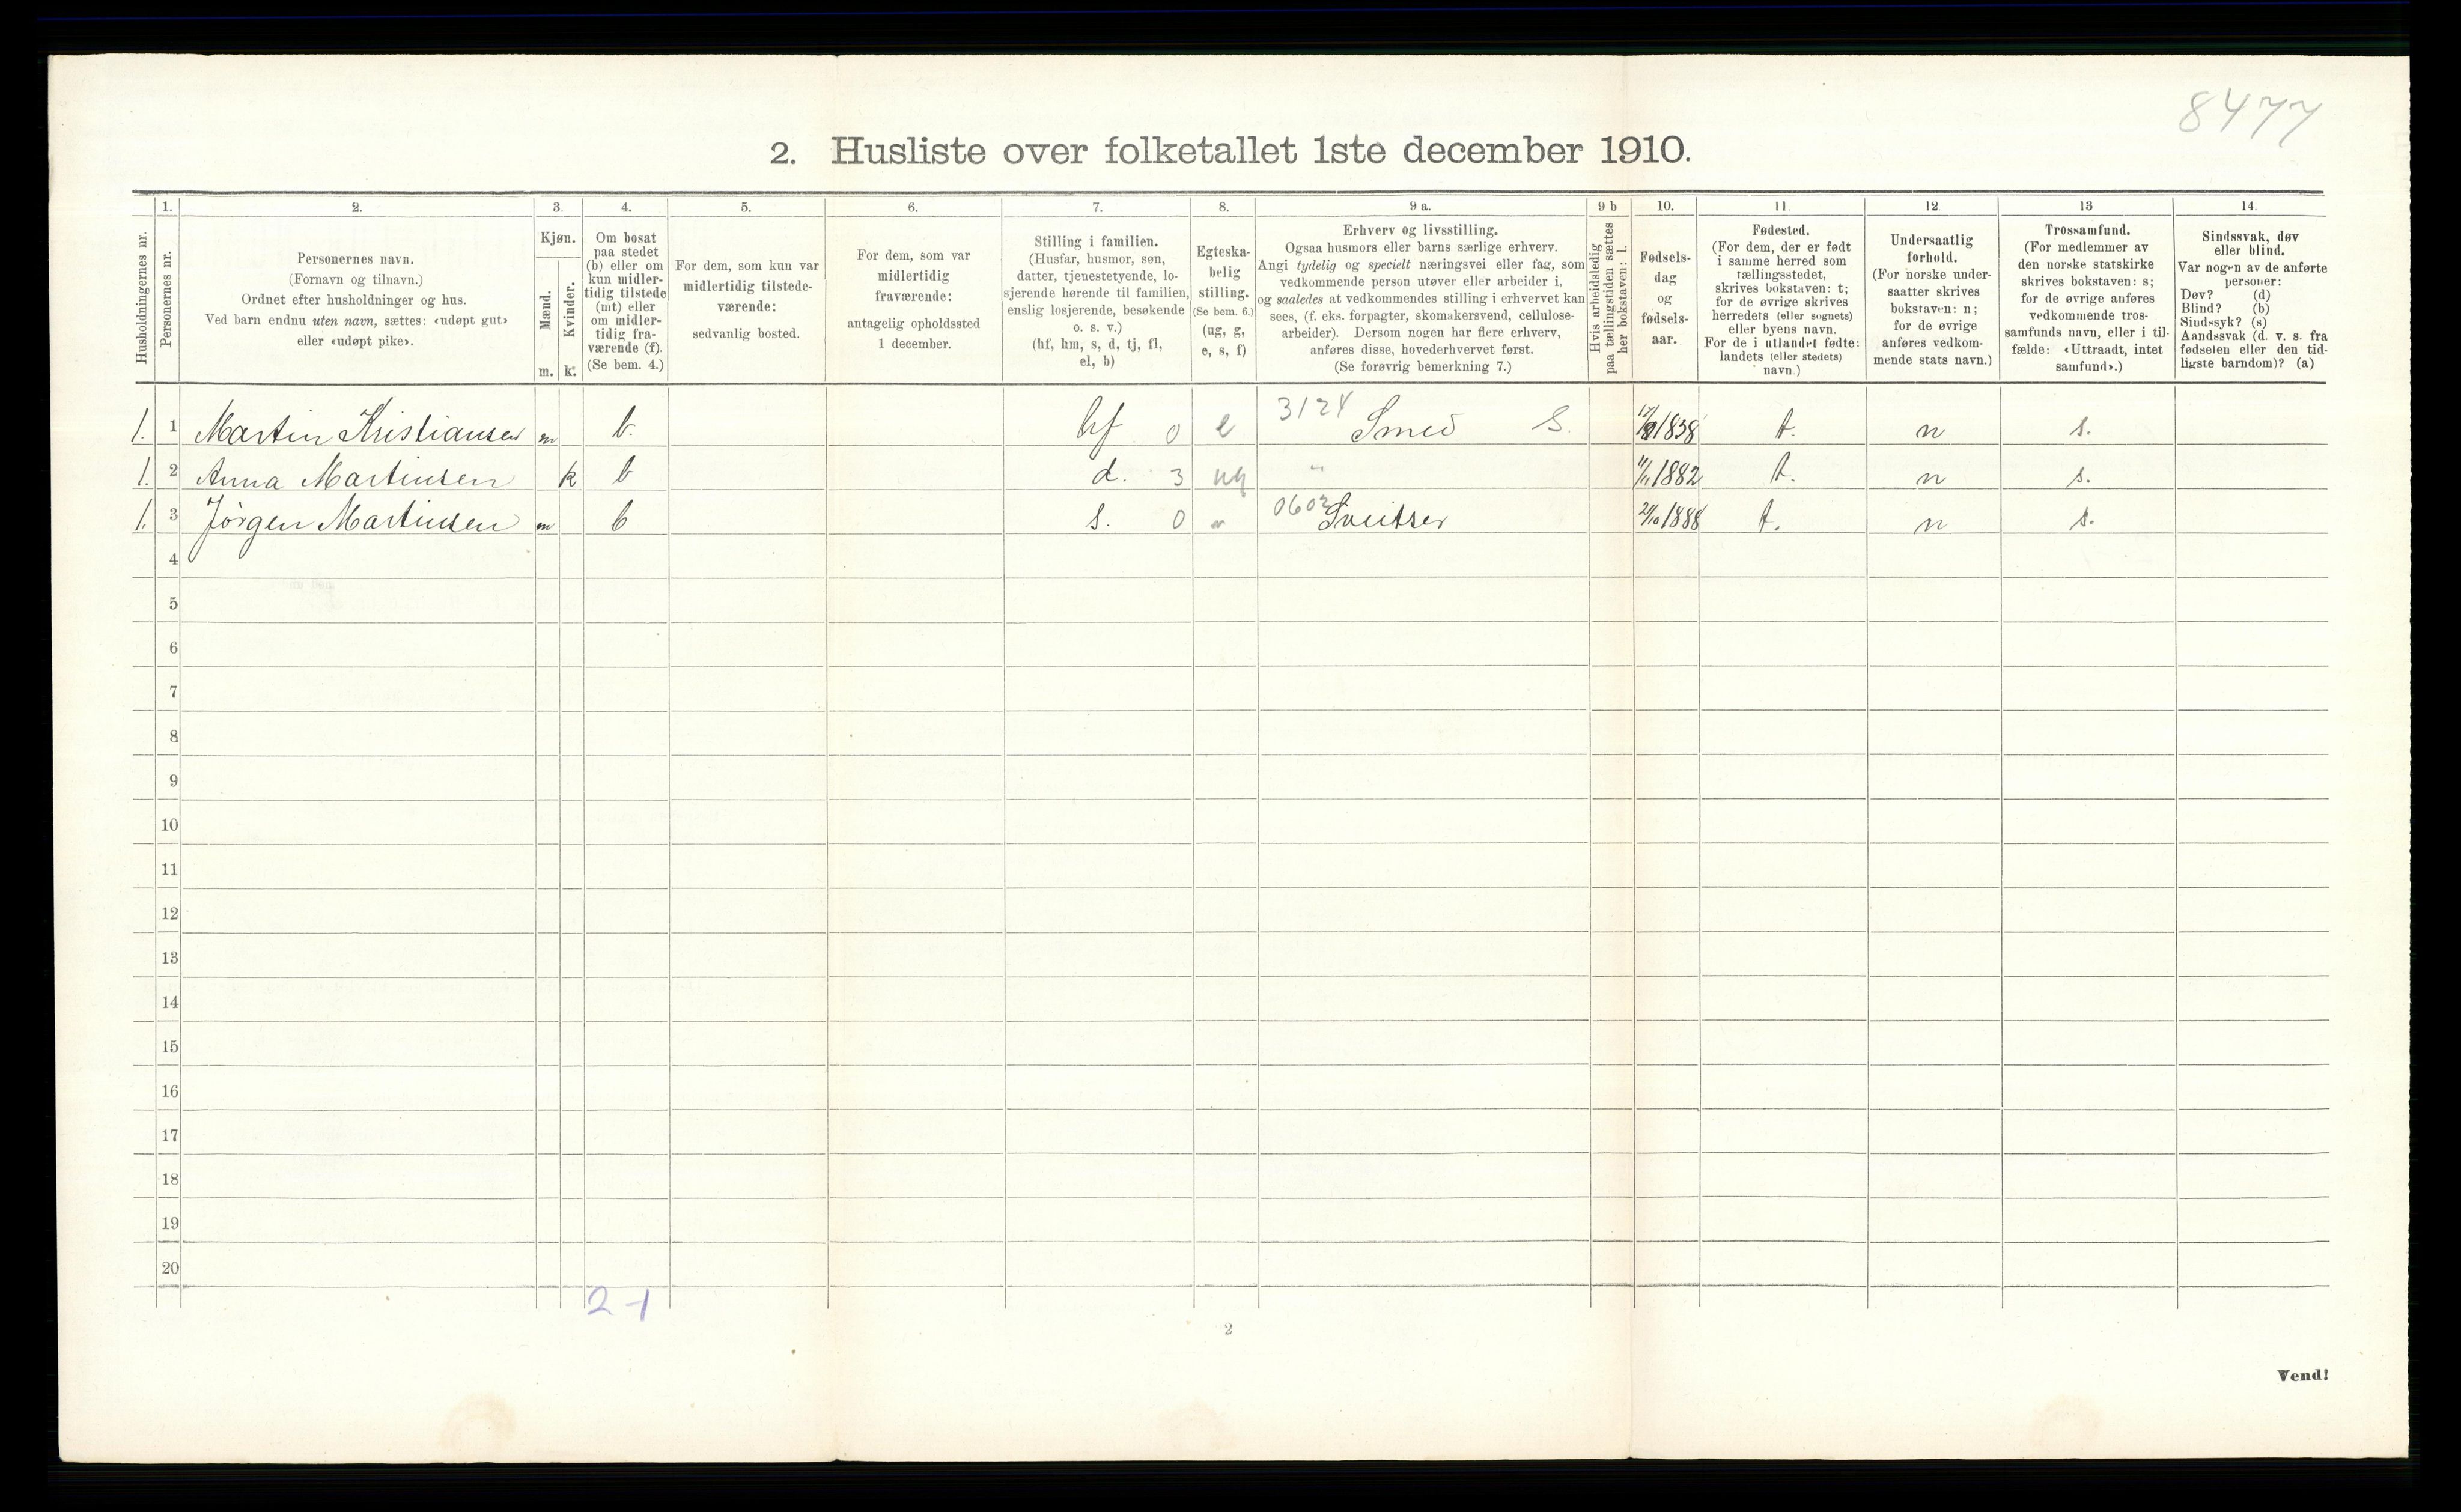 8477
2. Husliste over folketallet 1ste december 1910.
Husholdningernes nr.
1.
Personernes nr.
2.
Personernes navn.
(Fornavn og tilnavn.)
Ordnet efter husholdninger og hus.
Ved barn endnu uten navn, sættes: «udøpt gut»
eller «udøpt pike».
3.
Kjøn.
Mænd.
m.
Kvinder.
k.
4.
Om bosat
paa stedet
(b) eller om
kun midler-
tidig tilstede
(mt) eller
om midler-
tidig fra-
værende (f).
(Se bem. 4.)
5.
For dem, som kun var
midlertidig tilstede-
værende:
sedvanlig bosted.
6.
For dem, som var
midlertidig
fraværende:
antagelig opholdssted
1 december.
7.
Stilling i familien.
(Husfar, husmor, søn,
datter, tjenestetyende, lo-
sjerende hørende til familien,
enslig losjerende, besøkende
o. s. v.)
(hf, hm, s, d, tj, fl,
el, b)
8.
Egteska-
belig
stilling.
(Se bem. 6.)
(ug, g,
e, s, f)
9 a.
Erhverv og livsstilling.
Ogsaa husmors eller barns særlige erhverv.
Angi tydelig og specielt næringsvei eller fag, som
vedkommende person utøver eller arbeider i,
og saaledes at vedkommendes stilling i erhvervet kan
sees, (f. eks. forpagter, skomakersvend, cellulose-
arbeider). Dersom nogen har flere erhverv,
anføres disse, hovederhvervet først.
(Se forøvrig bemerkning 7.)
9 b
Hvis arbeidsledig
paa tællingstiden sættes
her bokstaven: l.
10.
Fødsels-
dag
og
fødsels-
aar.
11.
Fødested.
(For dem, der er født
i samme herred som
tællingsstedet,
skrives bokstaven: t;
for de øvrige skrives
herredets (eller sognets)
eller byens navn.
For de i utlandet fødte:
landets (eller stedets)
navn.)
12.
Undersaatlig
forhold.
(For norske under-
saatter skrives
bokstaven: n;
for de øvrige
anføres vedkom-
mende stats navn.)
13
Trossamfund.
(For medlemmer av
den norske statskirke
skrives bokstaven: s;
for de øvrige anføres
vedkommende tros-
samfunds navn, eller i til-
fælde: «Uttraadt, intet
samfund».)
14.
Sindssvak, døv
eller blind.
Var nogen av de anførte
personer:
Døv? (d)
Blind? (b)
Sindssyk? (s)
Aandssvak (d. v. s. fra
fødselen eller den tid-
ligste barndom)? (a)
1. 1 Martin Kristiansen m b. hf 0 e 3124 Smed S. 1838 t. n s.
1. 2 Anna Martinsen k b d. 3 ug " 11/11 1882 t. n s.
1. 3 Jörgen Martinsen m b s. 0 " 0602 Sveitser 21/10 1888 t. n s.
4
5
6
7
8
9
10
11
12
13
14
15
16
17
18
19
20
2-1
2
Vend!